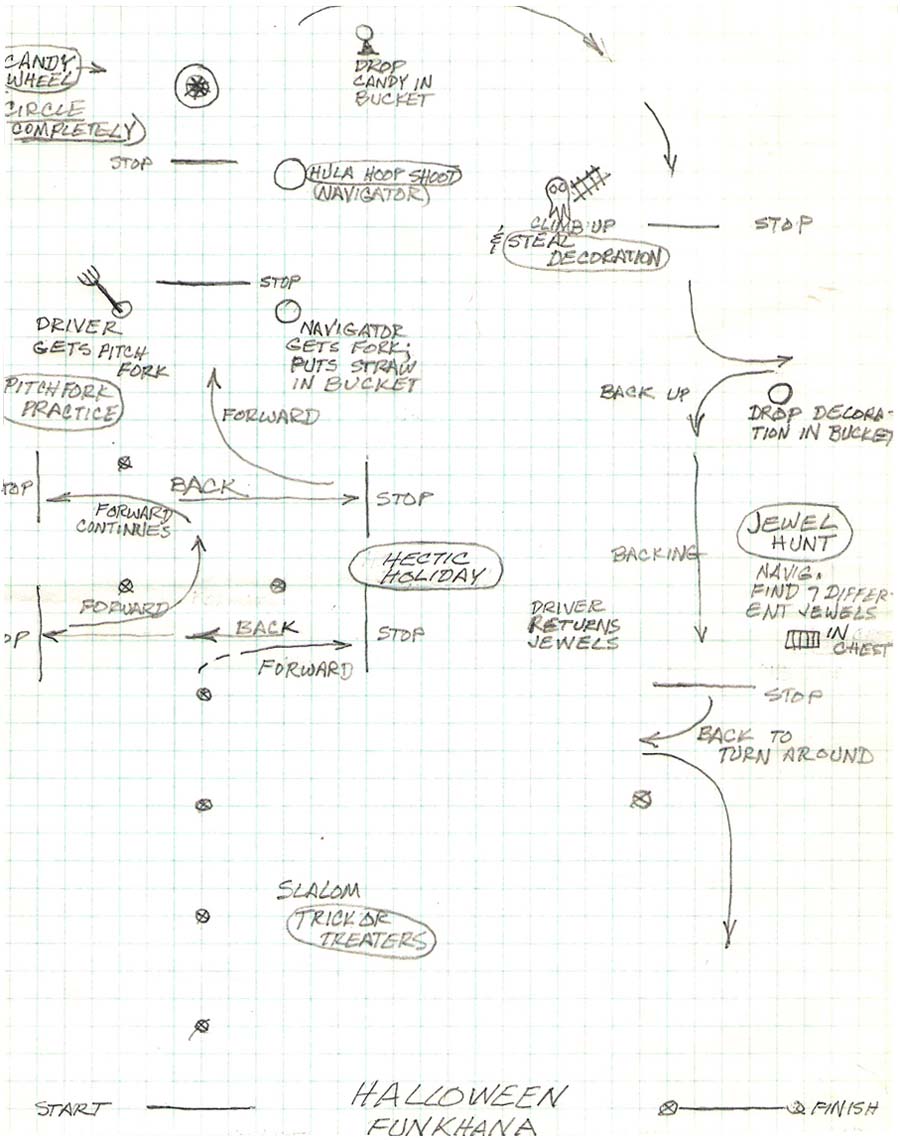 CANDY
WHEEL
CIRCLE
COMPLETELY
DROP
CANDY IN
BUCKET
STOP
HULA HOOP SHOOT
(NAVIGATOR)
CLIMB UP
& STEAL
DECORATION
STOP
STOP
DRIVER
GETS PITCH
FORK
NAVIGATOR
GETS FORK;
PUTS STRAW
IN BUCKET
PITCHFORK
PRACTICE
FORWARD
BACK UP
DROP DECORA-
TION IN BUCKET
TOP
BACK
STOP
FORWARD
CONTINUES
HECTIC
HOLIDAY
BACKING
JEWEL
HUNT
NAVIG.
FIND 7 DIFFER-
ENT JEWELS
IN
CHEST
FORWARD
OP
BACK
STOP
FORWARD
DRIVER
RETURNS
JEWELS
STOP
BACK TO
TURN AROUND
SLALOM
TRICK OR
TREATERS
START
HALLOWEEN
FUNKHANA
FINISH